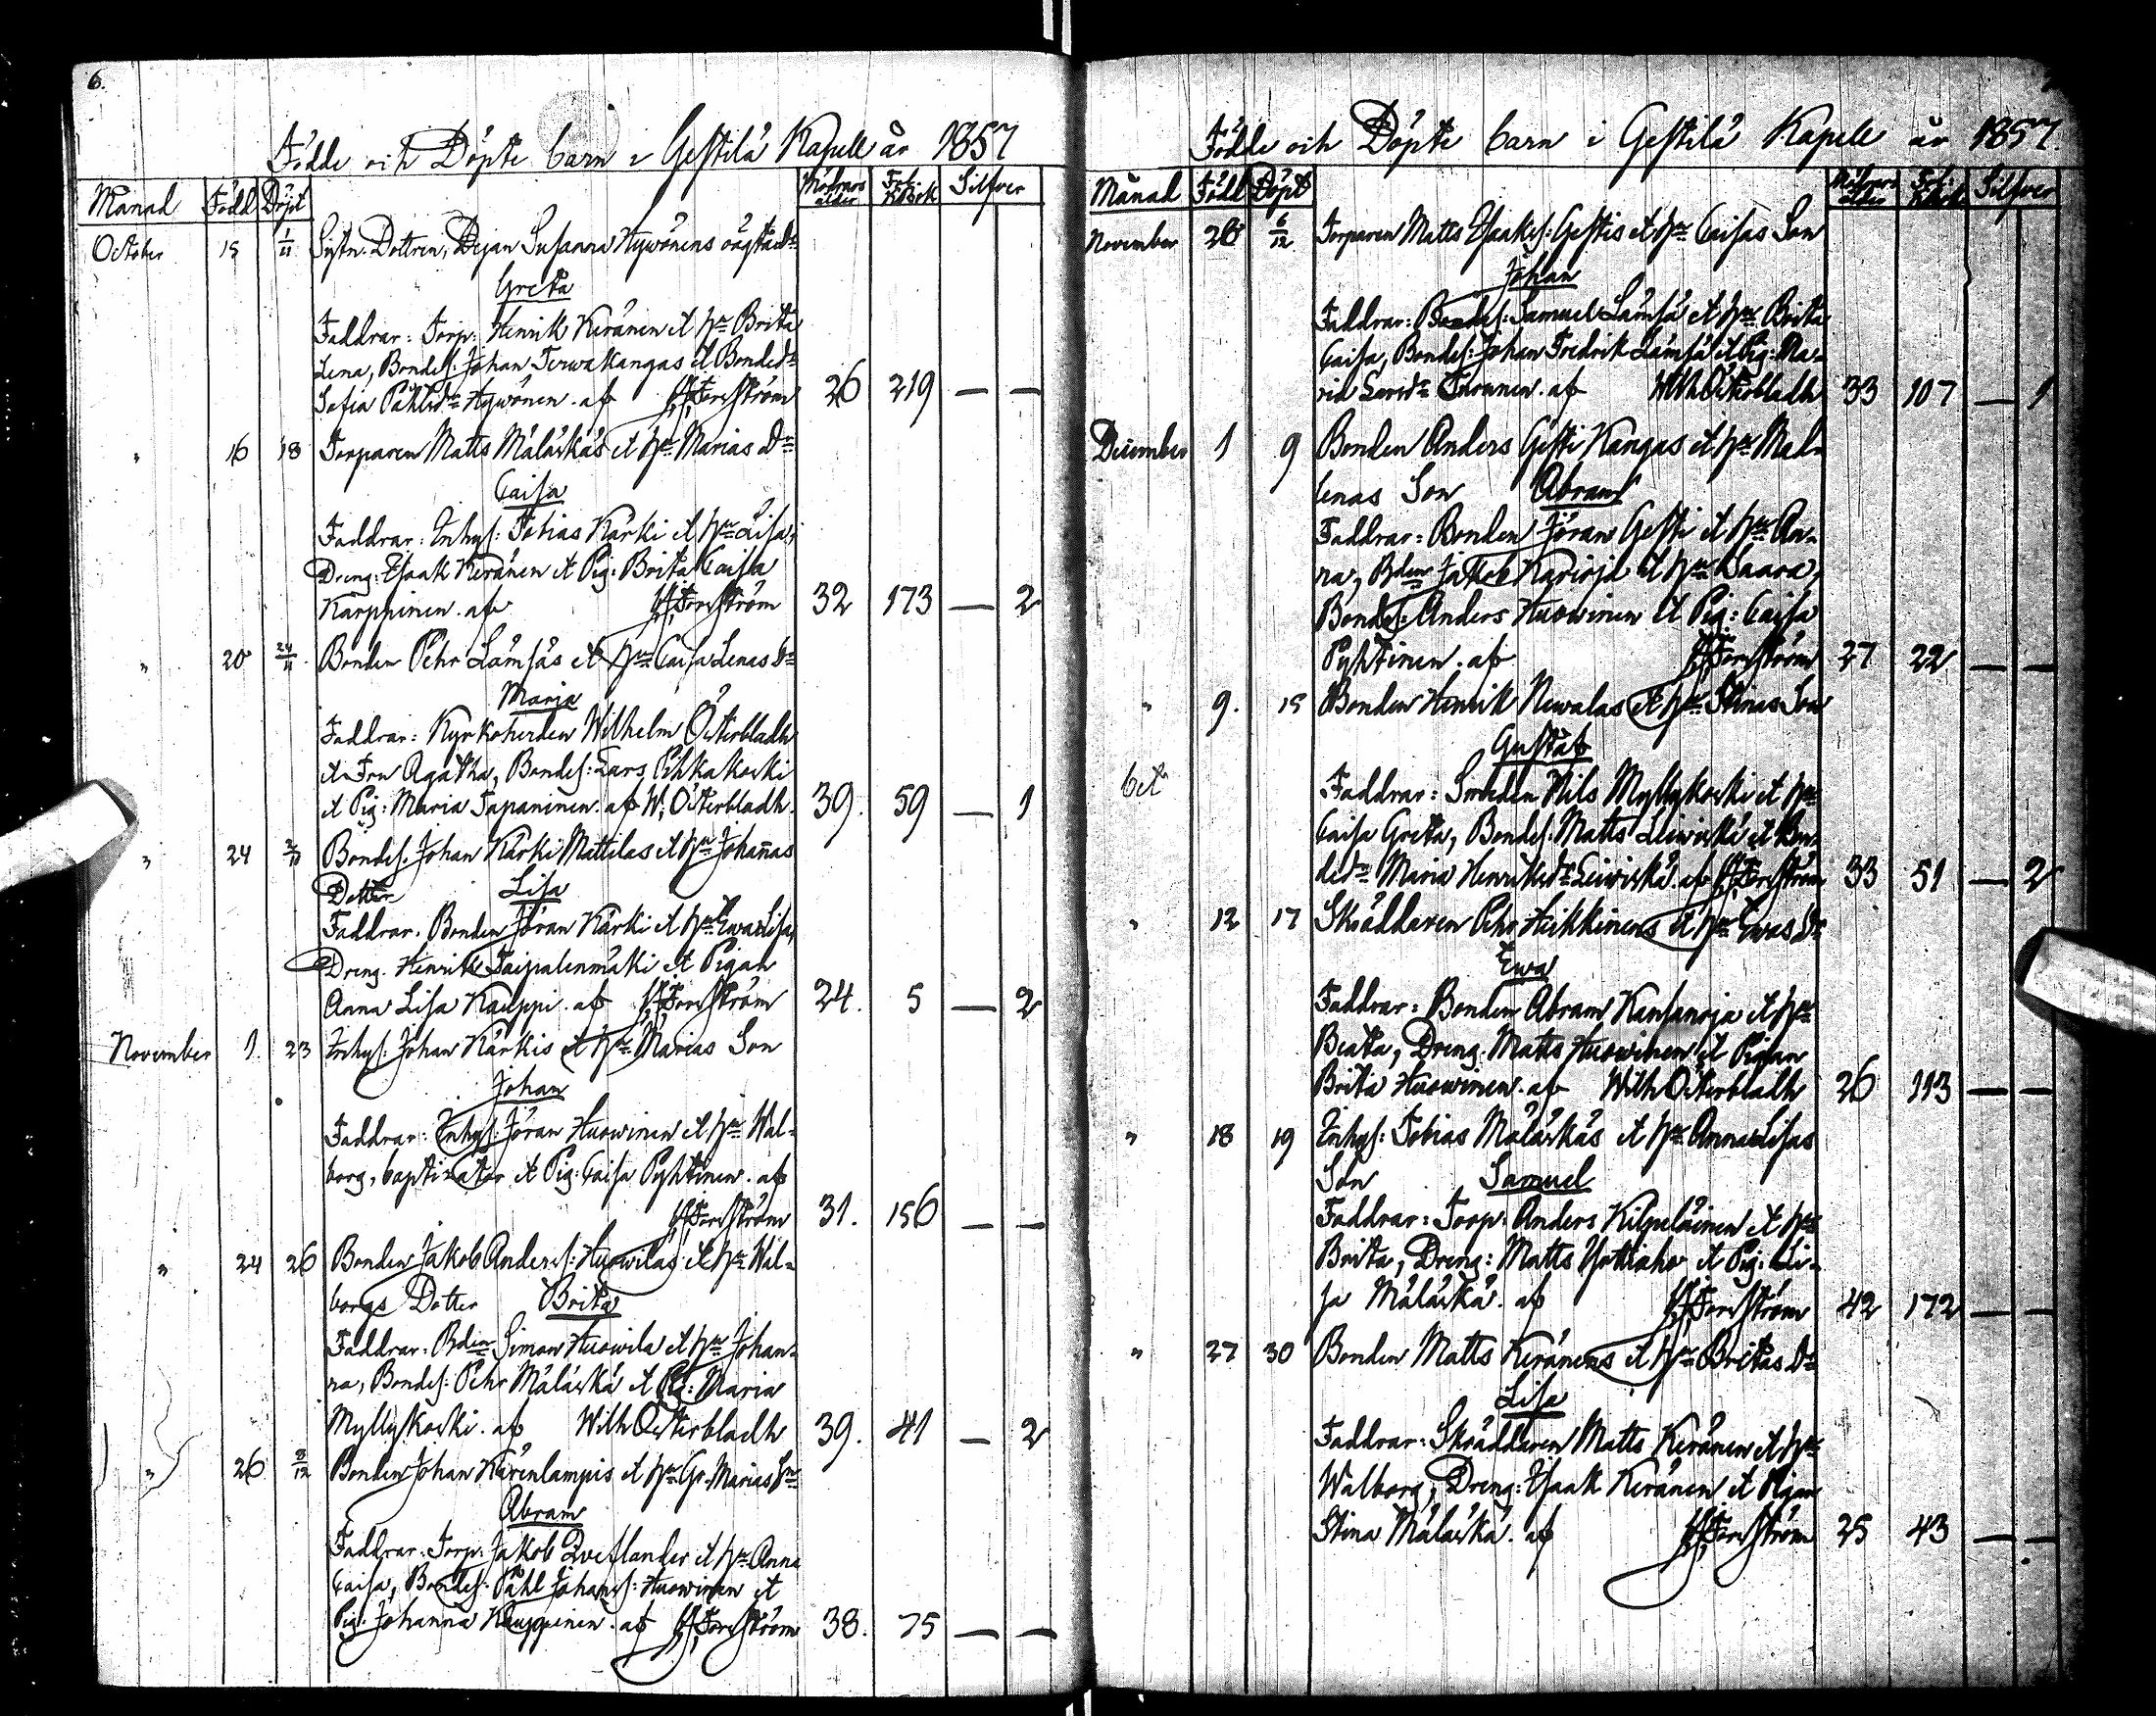 6.
Födde och Döpte barn i Gestilä Kapell år 1857
Månad Född Döpt Modrens ålder Silfver
October 15 1/11 Systn. Dottren, Pigan Susanna Hywönens oägta dr
Greta
Faddrar: Torp: Henrik Keränen et hru Brita
Lena, Bondes. Johan Terwakangas et Bonded.
Sofia Påhlsdr Hywönen. af HForsström 26 219 — —
" 16 18 Torparen Matts Mäläskäs et hru Marias Dr
Caisa
Faddrar: Inhys: Tobias Kärki et hru Lisa,
Dreng: Isaak Keränen et Pig: Brita Caisa
Karppinen. af HForsström 32 173 — 2
" 20 24/11 Bonden Pehr Lämsäs et hru Caisa Lenas Dr
Maria
Faddrar: Kyrkoherden Wilhelm Österbladh
et Fru Agatha, Bondes: Lars Pihkakoski
et Pig: Maria Tapaninen. af W. Österbladh. 39. 59 — 1
" 24 Bondes. Johan Kärki Mattilas et hru Johañas
Dotter Lisa
Faddrar. Bonden Jöran Kärki et hru Ewa Lisa,
Dreng. Henrik Taipalenmäki et Pigan
Anna Lisa Kauppi. af HForsström 24. 5 — 2
November 1. 23 Inhys. Johan Kärkis et hru Marias Son
Johan
Faddrar: Inhys. Jöran Huowinen et hru Wal-
borg, baptizator et Pig: Caisa Pyhtinen. af
HForsström 31. 156 — —
" 24 26 Bonden Jakob Anders: Huowilas et hru Wal-
borgs Dotter Brita
Faddrar: Bden Simon Huowila et hru Johan-
na, Bondes: Pehr Mäläskä et Pig: Maria
Myllykoski. af Wilh Österbladh 39. 41 — 2
" 26 8/12 Bonden Johan Kärenlampis et hru Gr. Marias Sn
Abram
Faddrar: Torp: Jakob Zweflander et hru Anna
Caisa, Bondes: Påhl Johans: Huowinen et
Pig: Johanna Kauppinen. af HForsström 38. 75 — —
Födde och Döpte barn i Gestilä Kapell år 1857.
Månad Född Döpt Modrens ålder Silfver
November 28 6/12 Torparen Matts Isaks: Gestis et hru Caisas Son
Johan
Faddrar: Bondes: Samuel Lämsä et hru Brita
Caisa, Bondes: Johan Fredrik Lämsä et Pig: Ma-
ria Larsdr Turunen. af Wilh Österbladh 33 107 — 1
December 1 9 Bonden Anders Gesti Kangas et hru Mal-
lenas Son Abram
Faddrar: Bonden Jöran Gesti et hru An-
na, Bden Jakob Karioja et hru Kaara,
Bondes: Anders Huowinen et Pig: Caisa
Pyhtinen. af HForsström 27 22 — —
" 9. 15 Bonden Henrik Newalas et hru Stinas Son
Gustaf
bet
Faddrar: Smeden Nils Myllykoski et hru
Caisa Greta, Bondes. Matts Leiwiskä et Bon-
dedr Maria Henriksdr Leiwiskä. af HForsström 33 51 — 2
" 12 17 Skräddaren Pehr Heikkinens et hru Ewas Dr
Ewa
Faddrar: Bonden Abram Kansanoja et hru
Beata, Dreng. Matts Huowinen et Pigan
Brita Huowinen. af Wilh Österbladh 26 113 — —
" 18 19 Inhys: Tobias Mäläskäs et hru Anna Lisas
Son Samuel
Faddrar: Torp: Anders Kilpeläinen et hru
Brita, Dreng: Matts Yottiaho et Pig: Li-
sa Mäläskä. af HForsström 42 172 — —
" 27 30 Bonden Matts Keränens et hru Britas Dr
Lisa
Faddrar: Skräddaren Matts Keränen et hru
Walborg, Dreng: Isaak Keränen et Pigan
Stina Mäläskä. af HForsström 25 43 — —